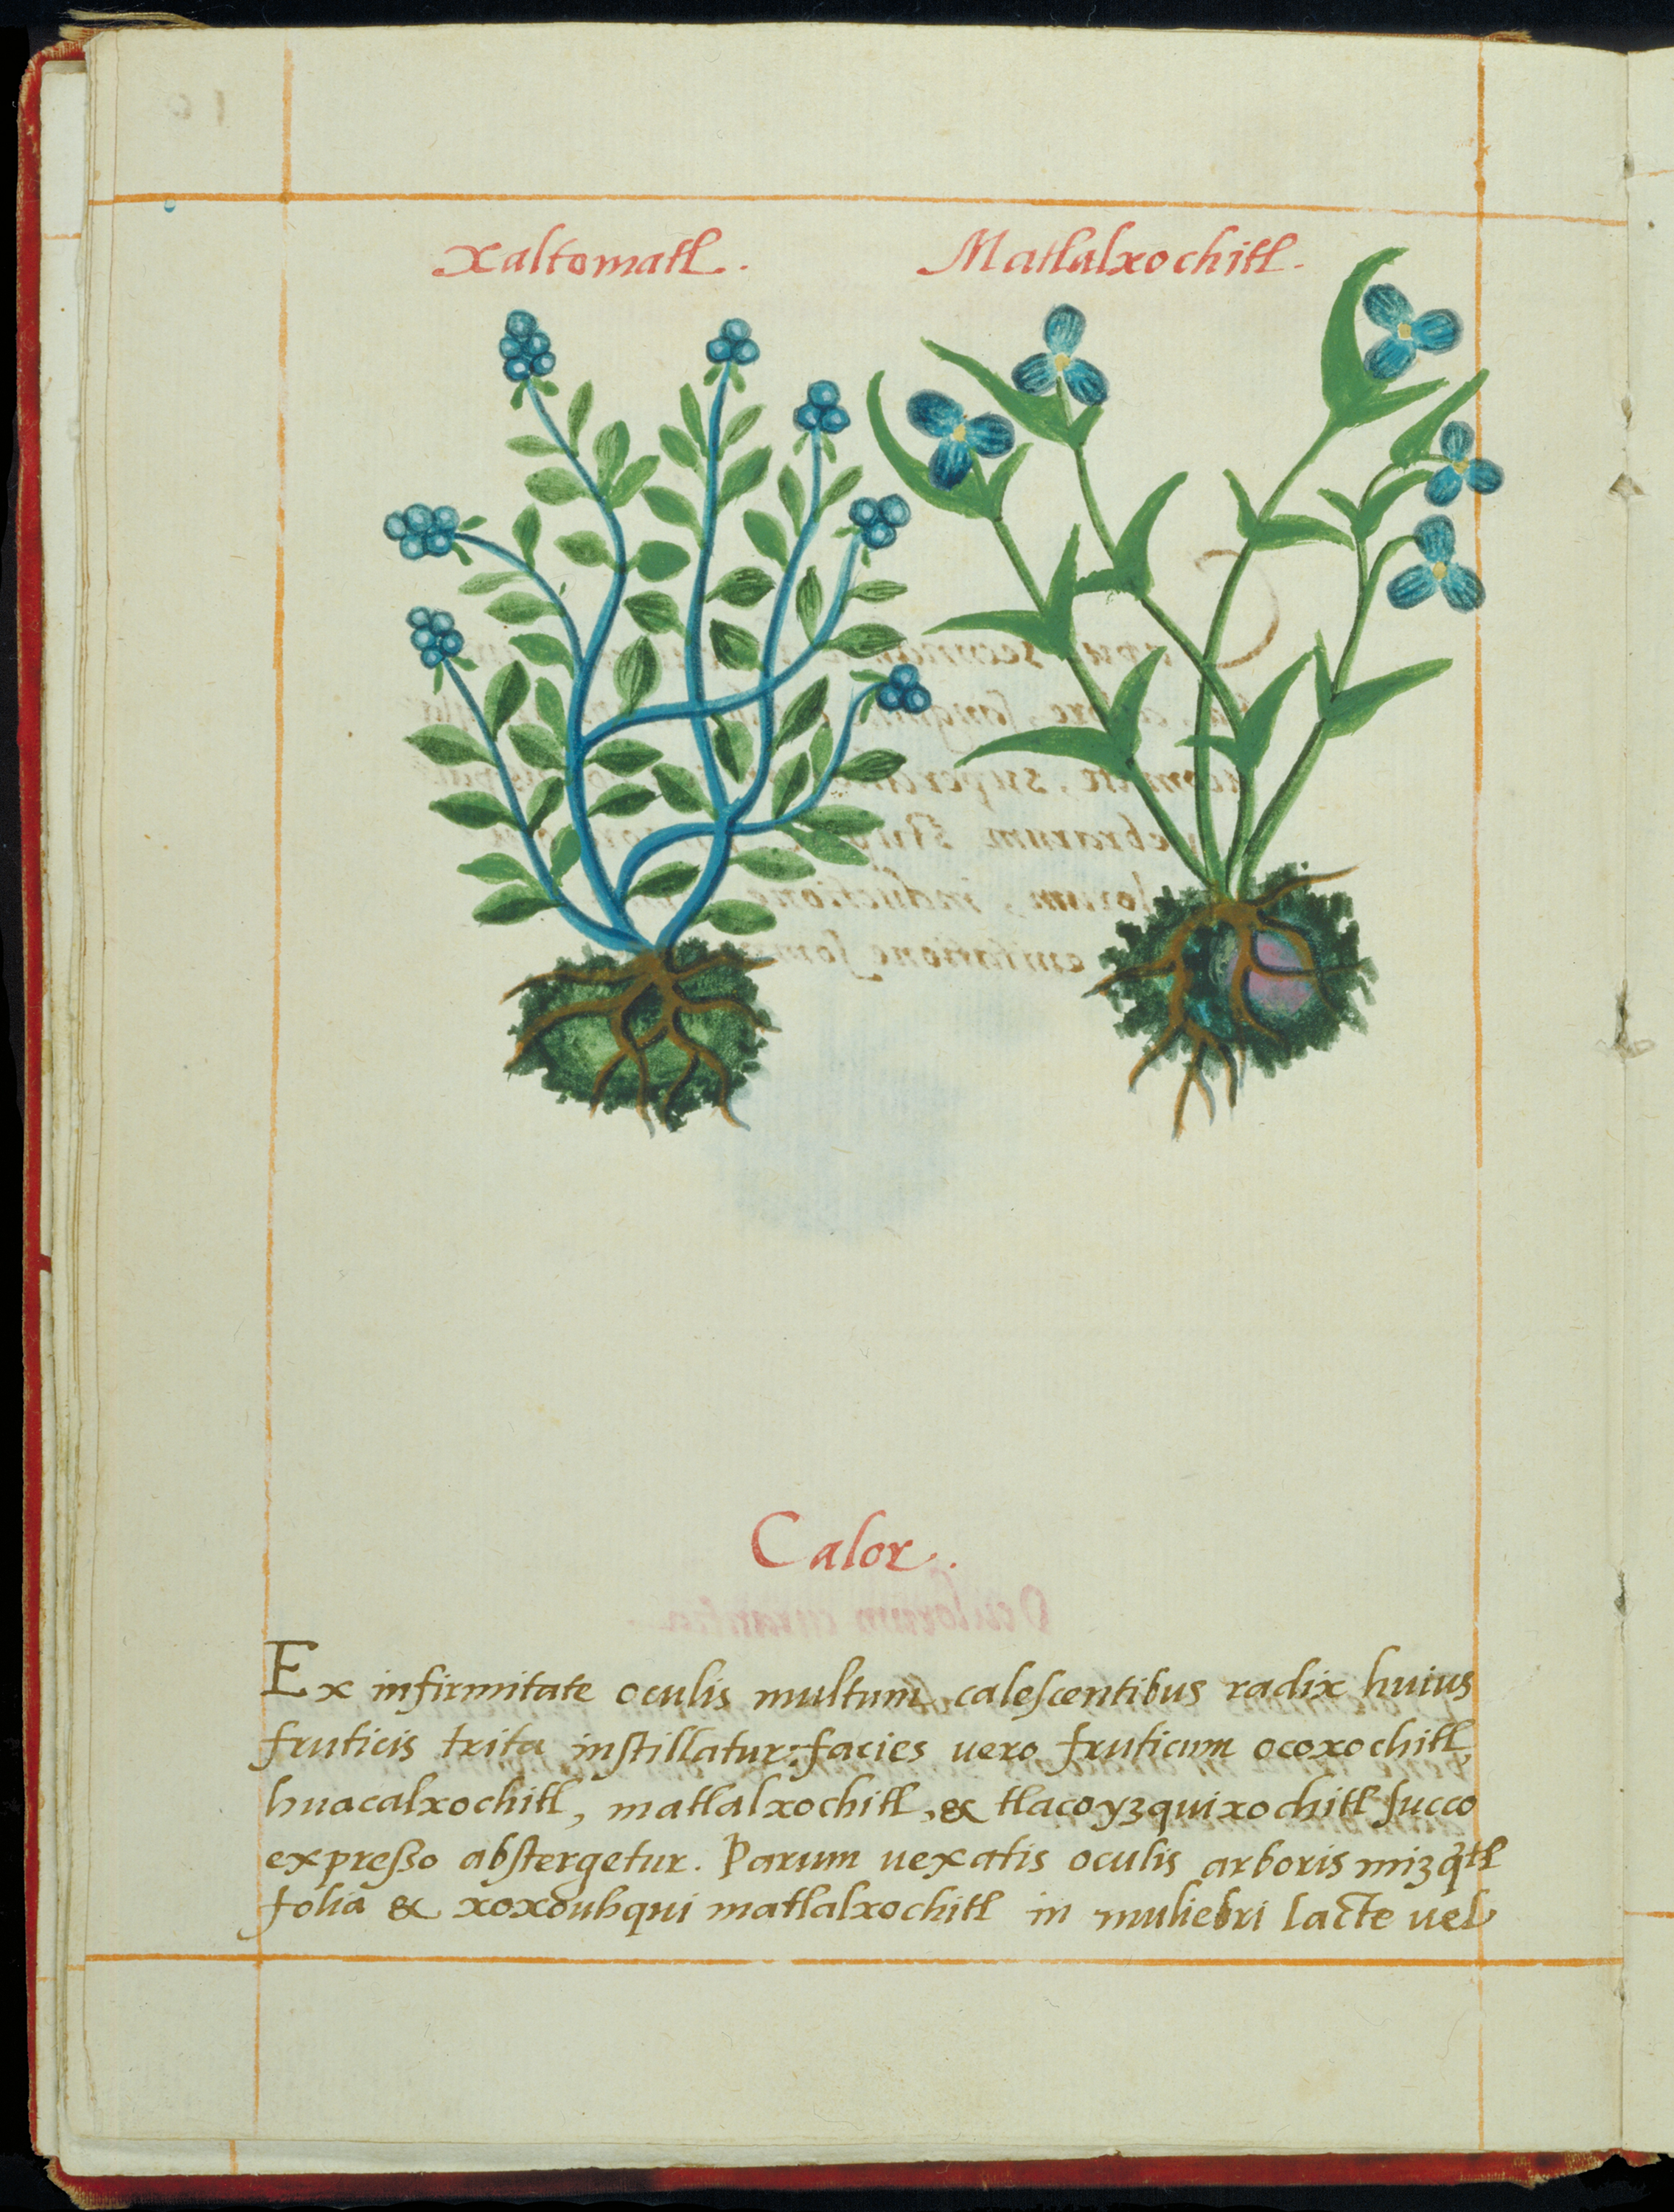 Xaltomatl. Matlalxochitl.
Calor.
Ex infirmitate oculis multum caleſcentibus radix huius
fruticis trita inſtillatur: facies uero fruticum ocoxochitl,
huacalxochitl, matlalxochitl, & tlacoyzquixochitl ſucco
expreßo abſtergetur. Parum uexatis oculis arboris mizq̃tl
folia & xoxouhqui matlalxochitl in muliebri lacte uel